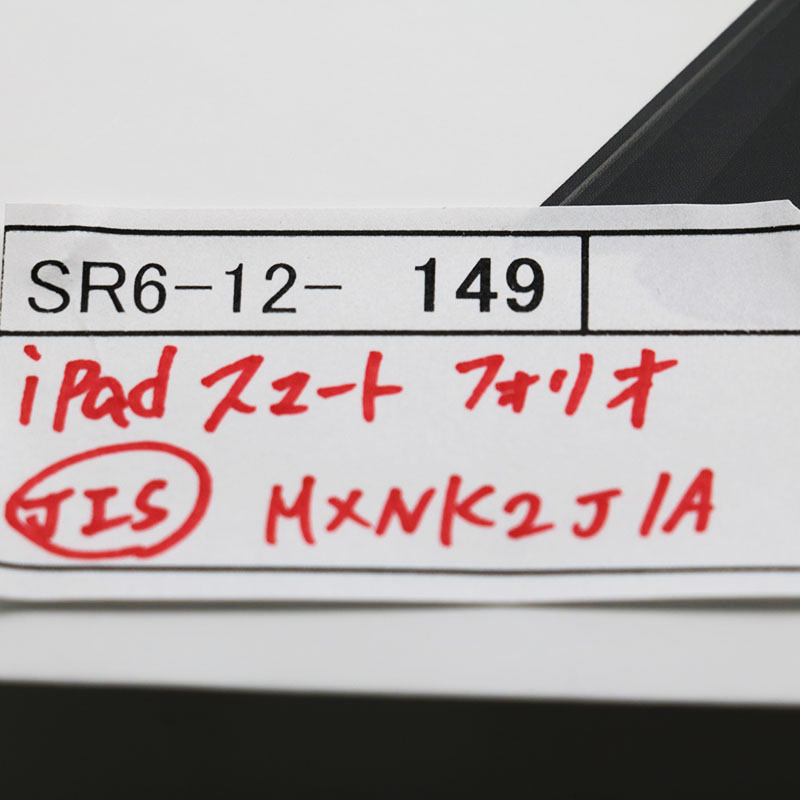 SR6-12- 149
iPad スマート フォリオ
JIS MXNK2J/A